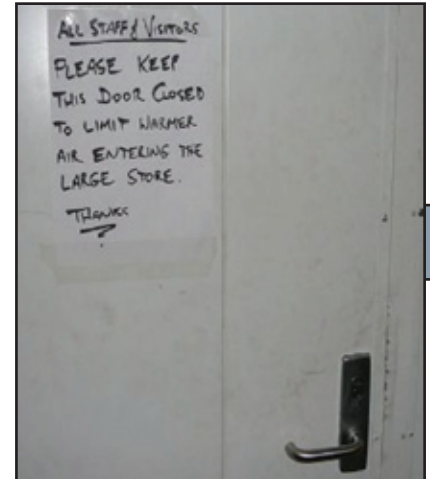 ALL STAFF & VISITORS
PLEASE KEEP
THIS DOOR CLOSED
TO LIMIT WARMER
AIR ENTERING THE
LARGE STORE.
THANKS